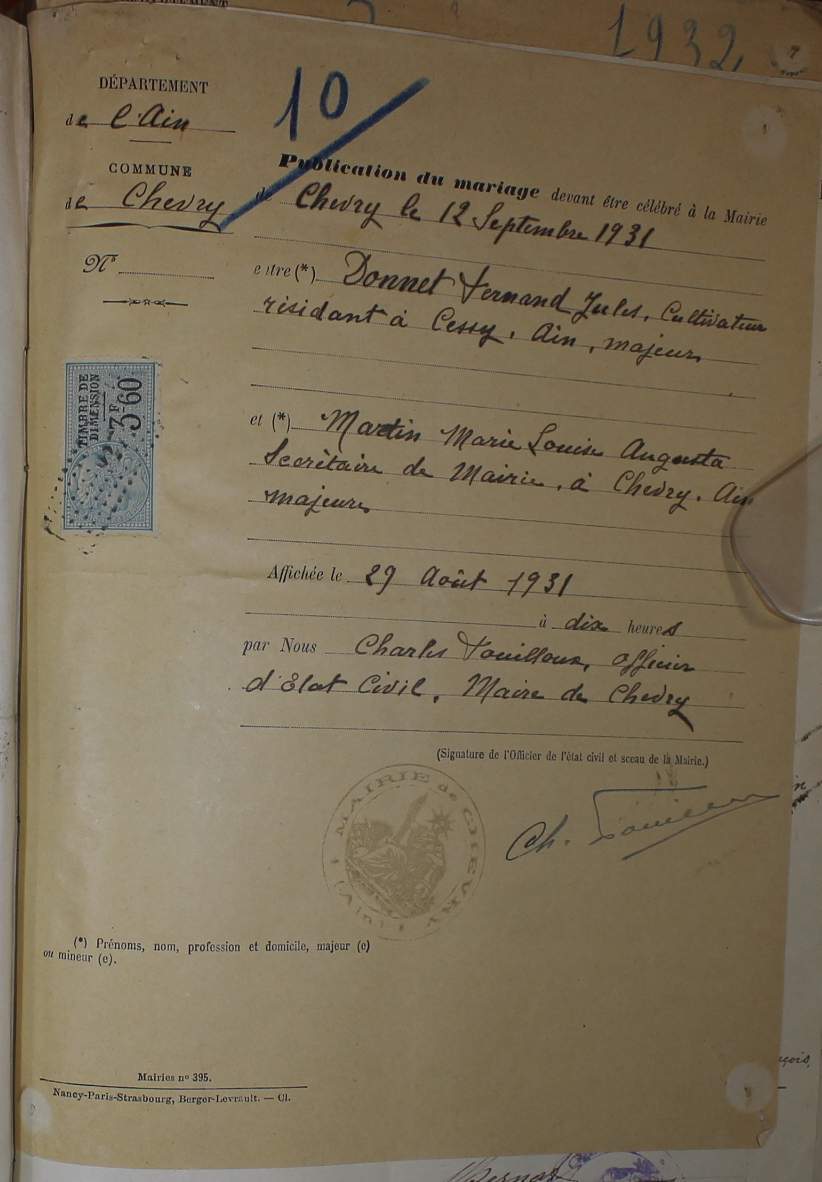 1932
DÉPARTEMENT
de l'Ain
10
COMMUNE
de Chevry
Publication du mariage devant être célébré à la Mairie
de Chevry le 12 Septembre 1931
N°
entre (*) Donnet Fernand Jules, Cultivateur
résidant à Cessy, Ain, majeur
TIMBRE DE
DIMENSION
3F60
et (*) Martin Marie Louise Augusta
Secrétaire de Mairie, à Chevry, Ain
majeure
Affichée le 29 Août 1931
à dix heures
par Nous Charles Fouilloux, officier
d'Etat Civil, Maire de Chevry
(Signature de l'Officier de l'état civil et sceau de la Mairie.)
MAIRIE de CHEVRY
(Ain)
Ch. Fouilloux
(*) Prénoms, nom, profession et domicile, majeur (e)
ou mineur (e).
Mairies n° 395.
Nancy-Paris-Strasbourg, Berger-Levrault. — Cl.